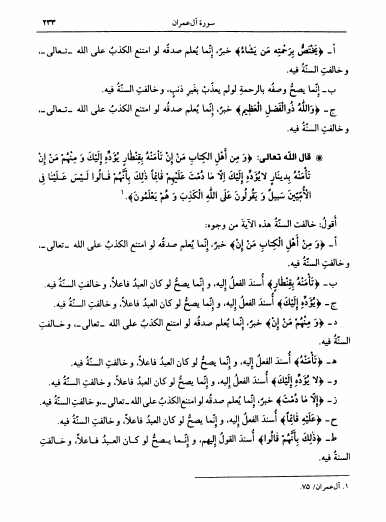 سورة آل عمران ٢٣٣
أ- ﴿يَخْتَصُّ بِرَحْمَتِهِ مَن يَشَاءُ﴾ خبرٌ، إنّما يُعلم صدقُه لو امتنع الكذبُ على الله -تعالى-،
وخالفتِ السنّةُ فيه.
ب- إنّما يصحُّ وصفُه بالرحمةِ لولم يعذّبْ بغيرِ ذنبٍ، وخالفتِ السنّةُ فيه.
ج- ﴿وَاللَّهُ ذُوالْفَضْلِ الْعَظِيمِ﴾ خبرٌ، إنّما يُعلم صدقُه لو امتنع الكذبُ على الله -تعالى-،
وخالفتِ السنّةُ فيه.
* قال الله تعالى: ﴿وَ مِنْ أَهْلِ الْكِتَابِ مَنْ إِنْ تَأْمَنْهُ بِقِنْطَارٍ يُؤَدِّهِ إِلَيْكَ وَ مِنْهُمْ مَنْ إِنْ
تَأْمَنْهُ بِدِينَارٍ لايُؤَدِّهِ إِلَيْكَ إِلَّا مَا دُمْتَ عَلَيْهِمْ قَائِماً ذَلِكَ بِأَنَّهُمْ قَالُوا لَيْسَ عَلَيْنَا فِى
الْأُمِّيِّينَ سَبِيلٌ وَ يَقُولُونَ عَلَى اللَّهِ الْكَذِبَ وَ هُمْ يَعْلَمُونَ﴾.١
أقولُ: خالفت السنّةُ هذه الآيةَ من وجوهٍ:
أ- ﴿وَ مِنْ أَهْلِ الْكِتَابِ مَنْ إِنْ﴾ خبرٌ، إنّما يُعلم صدقُه لو امتنع الكذبُ على الله -تعالى-،
وخالفتِ السنّةُ فيه.
ب- ﴿تَأْمَنْهُ بِقِنْطَارٍ﴾ أسندَ الفعلَ إليه، و إنّما يصحُّ لو كان العبدُ فاعلاً، و خالفتِ السنّةُ فيه.
ج- ﴿يُؤَدِّهِ إِلَيْكَ﴾ أسندَ الفعلَ إليه، و إنّما يصحُّ لو كان العبدُ فاعلاً، و خالفتِ السنّةُ فيه.
د- ﴿وَ مِنْهُمْ مَنْ إِنْ﴾ خبرٌ، إنّما يُعلم صدقُه لو امتنع الكذبُ على الله -تعالى-، و خالفتِ
السنّةُ فيه.
هـ- ﴿تَأْمَنْهُ﴾ أسندَ الفعلَ إليه، و إنّما يصحُّ لو كان العبدُ فاعلاً، و خالفتِ السنّةُ فيه.
و- ﴿لا يُؤَدِّهِ إِلَيْكَ﴾ أسندَ الفعلَ إليه، و إنّما يصحُّ لو كان العبدُ فاعلاً، و خالفتِ السنّةُ فيه.
ز- ﴿إِلَّا مَا دُمْتَ﴾ خبرٌ، إنّما يُعلم صدقُه لو امتنع الكذبُ على الله -تعالى-، و خالفتِ السنّةُ فيه.
ح- ﴿عَلَيْهِ قَائِماً﴾ أسندَ الفعلَ إليه، و إنّما يصحُّ لو كان العبدُ فاعلاً، و خالفتِ السنّةُ فيه.
ط- ﴿ذَلِكَ بِأَنَّهُمْ قَالُوا﴾ أسندَ القولَ إليهم، و إنّما يصحُّ لو كان العبدُ فاعلاً، و خالفتِ
السنةُ فيه.
١. آل عمران/ ٧٥.